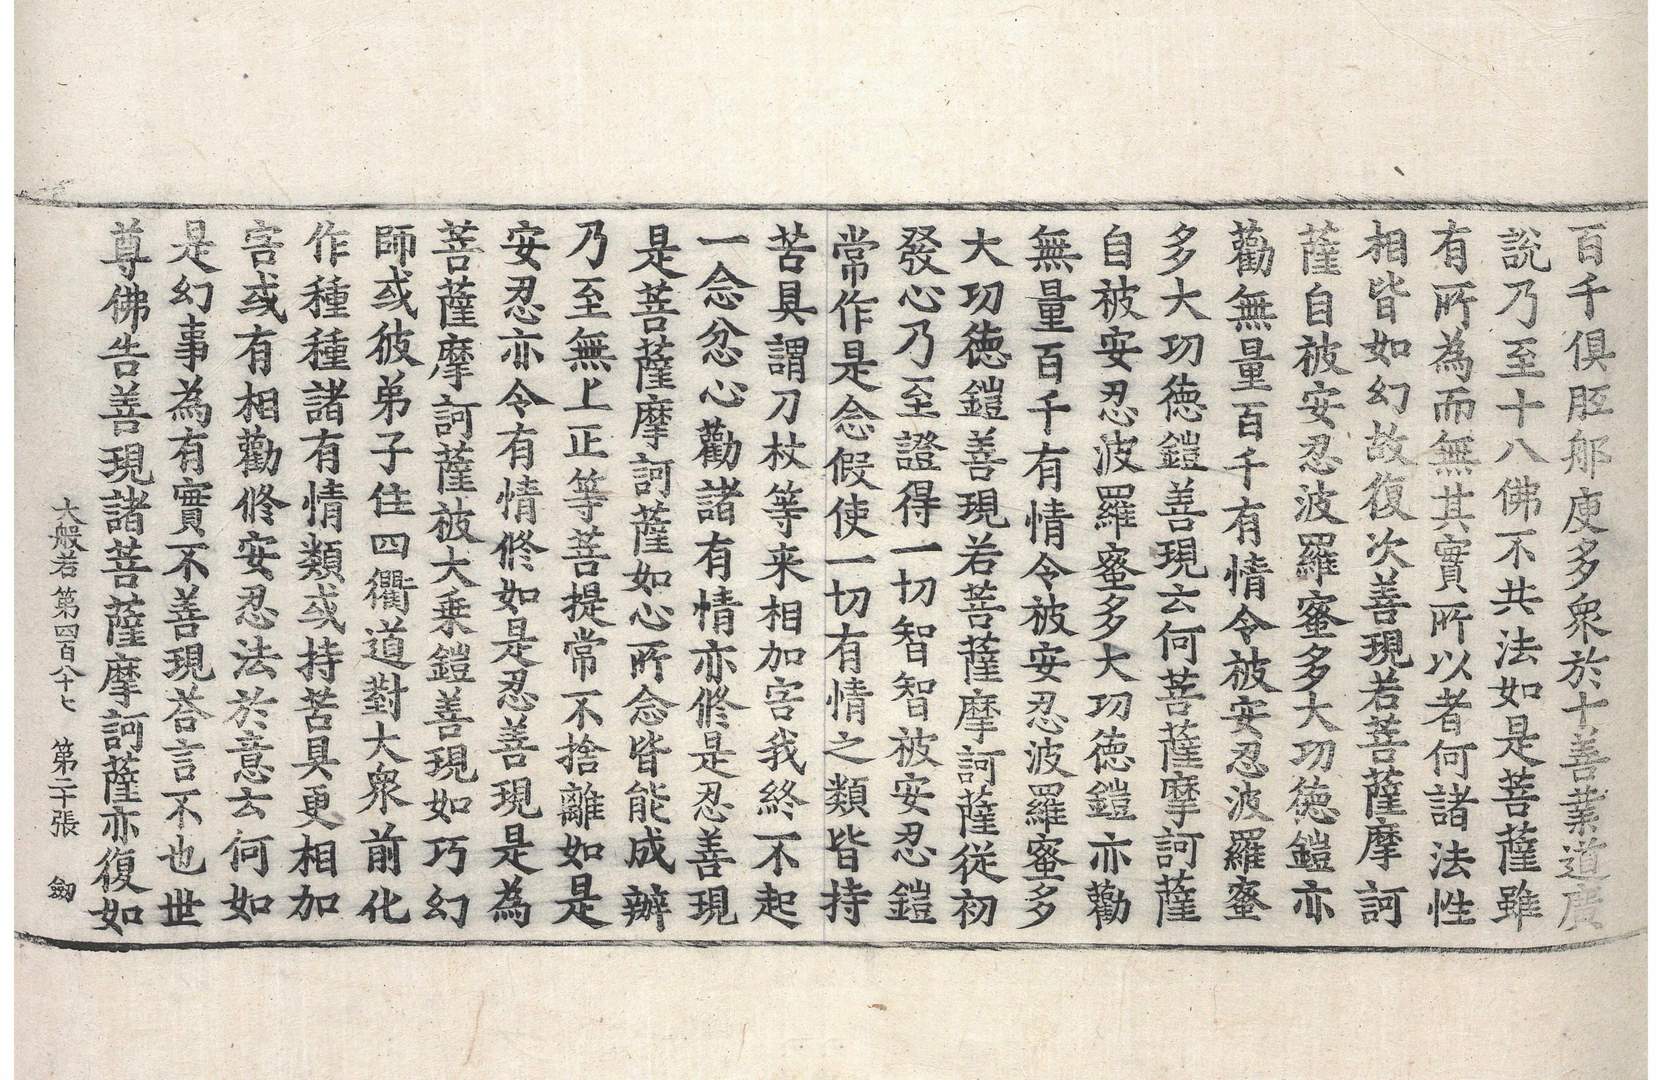 百千俱胝那庾多衆於十善業道廣
說乃至十八佛不共法如是菩薩雖
有所為而無其實所以者何諸法性
相皆如幻故復次善現若菩薩摩訶
薩自被安忍波羅蜜多大功德鎧亦
勸無量百千有情令被安忍波羅蜜
多大功德鎧善現云何菩薩摩訶薩
自被安忍波羅蜜多大功德鎧亦勸
無量百千有情令被安忍波羅蜜多
大功德鎧善現若菩薩摩訶薩從初
發心乃至證得一切智智被安忍鎧
常作是念假使一切有情之類皆持
苦具謂刀杖等来相加害我終不起
一念忿心勸諸有情亦修是忍善現
是菩薩摩訶薩如心所念皆能成辦
乃至無上正等菩提常不捨離如是
安忍亦令有情修如是忍善現是為
菩薩摩訶薩被大乘鎧善現如巧幻
師或彼弟子住四衢道對大衆前化
作種種諸有情類或持苦具更相加
害或有相勸修安忍法於意云何如
是幻事為有實不善現荅言不也世
尊佛告善現諸菩薩摩訶薩亦復如
大般若第四百八十七 第二十張 劒